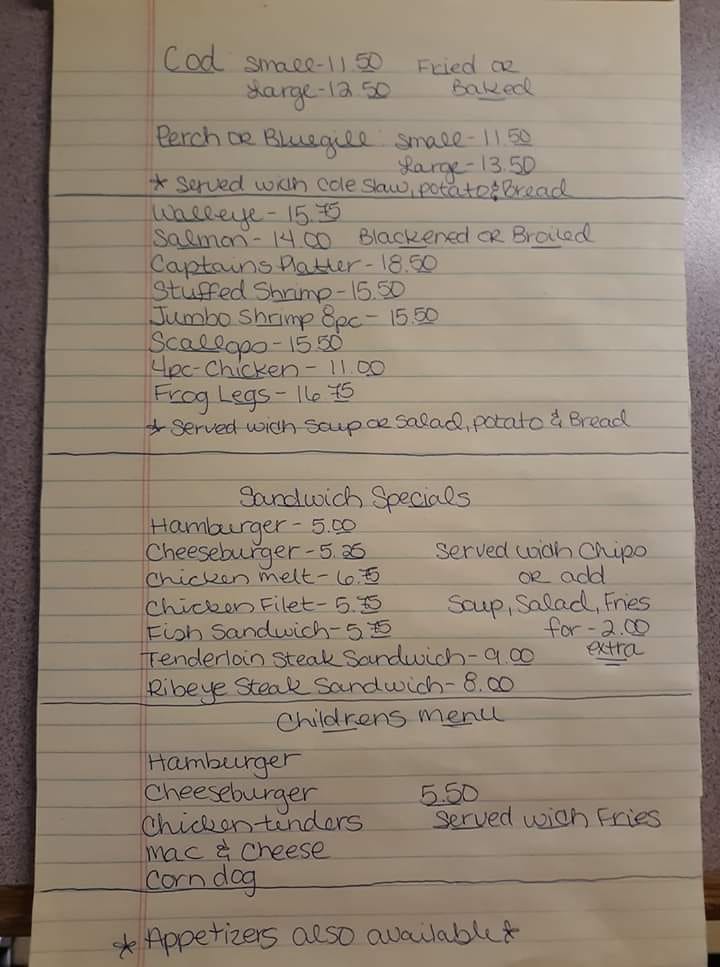 Cod small-11.50 Fried or
Large-12.50 Baked
Perch or Bluegill small-11.50
Large-13.50
* Served with Cole Slaw, potato & Bread
Walleye - 15.75
Salmon - 14.00 Blackened or Broiled
Captains Platter - 18.50
Stuffed Shrimp - 15.50
Jumbo Shrimp 8pc - 15.50
Scallops - 15.50
4pc-Chicken - 11.00
Frog Legs - 16.75
* Served with Soup or Salad, potato & Bread
Sandwich Specials
Hamburger - 5.00
Cheeseburger - 5.25 Served with Chips
Chicken melt - 6.75 or add
Chicken Filet - 5.75 Soup, Salad, Fries
Fish Sandwich - 5.75 for - 2.00
Tenderloin Steak Sandwich - 9.00 extra
Ribeye Steak Sandwich - 8.00
Childrens menu
Hamburger
Cheeseburger 5.50
Chicken tenders Served with Fries
Mac & Cheese
Corn dog
* Appetizers also available *